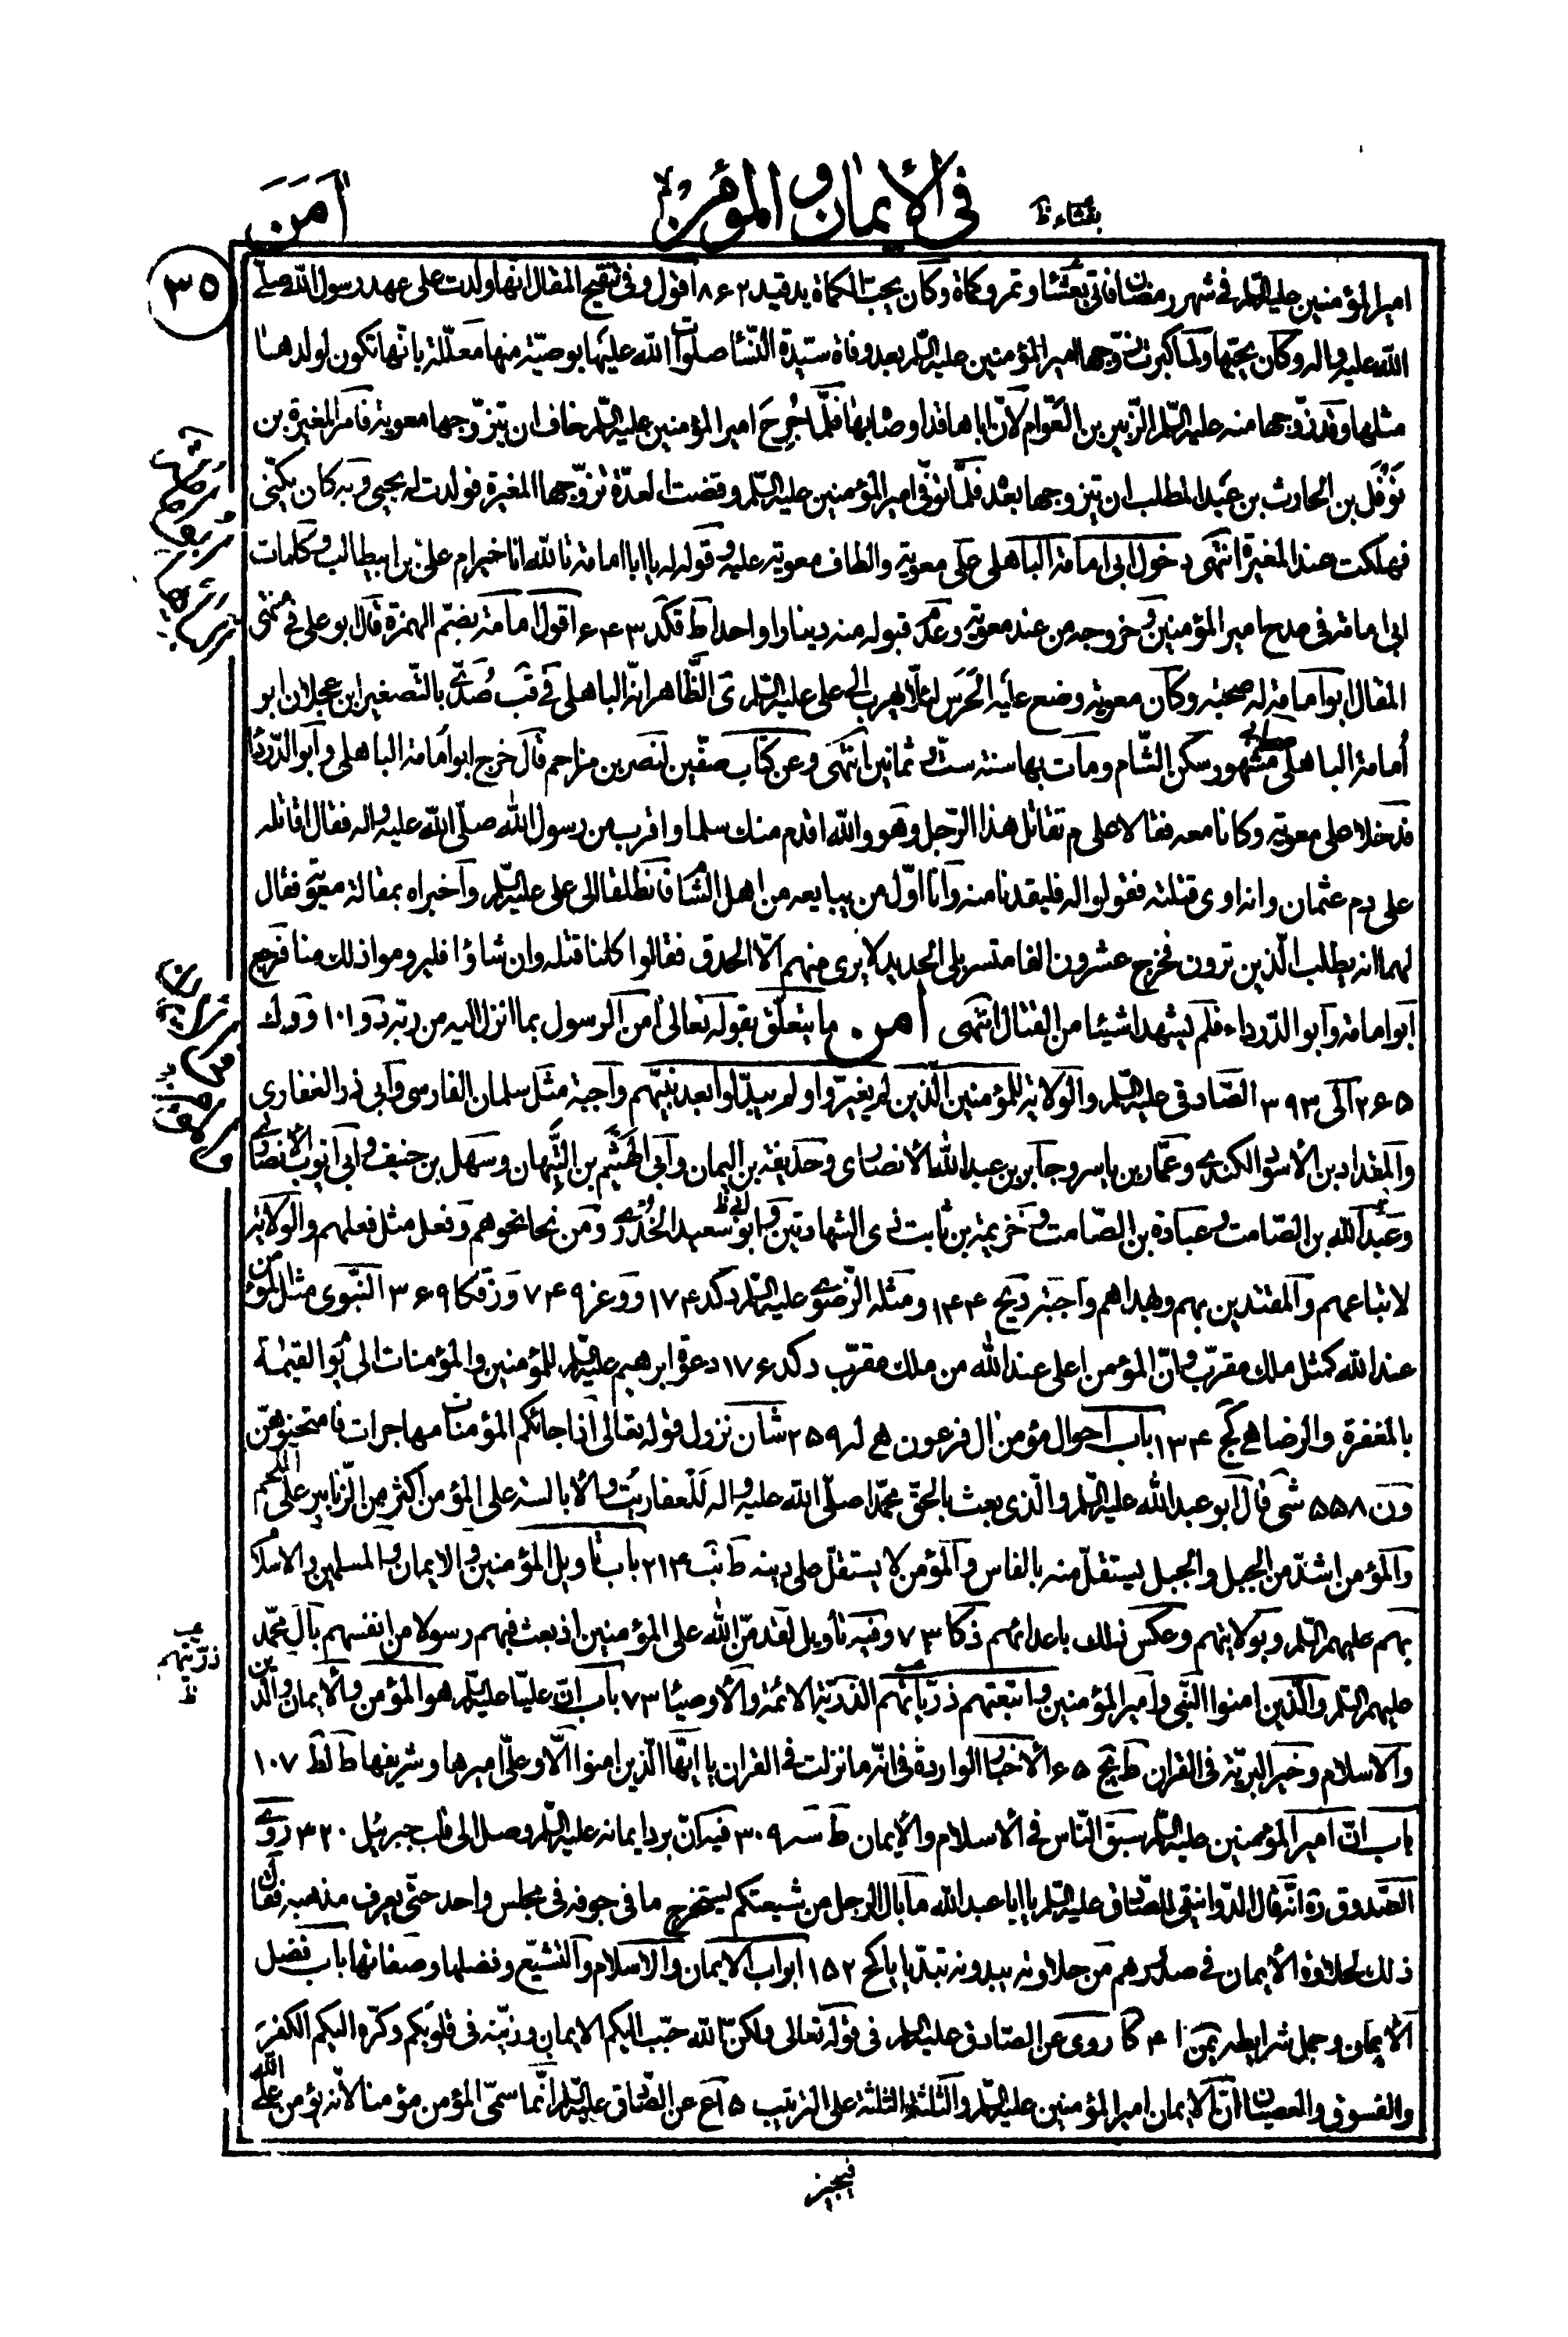 بعشاء ظ
فى الأيمان والمؤمن
أمن
٣٥
امير المؤمنين عليه السّلم فى شهر رمضان فاتى بعشاء وتمر وكماة وكان يحبّ الكماة يد قيد ٨٦٢ اقول وفى تنقيح المقال انّها ولدت على عهد رسول اللّه صلّى
اللّه عليه واله وكان يحبّها ولمّا كبرت تزوّجها امير المؤمنين عليه السّلم بعد وفاة سيّدة النّساء صلوات اللّه عليها بوصيّة منها معلّلة بانّها تكون لولدها
مثلها وقد زوّجها منه عليه السّلم الزّبير بن العوّام لأنّ اباها قد اوصاه بها فلمّا جُرِحَ امير المؤمنين عليه السّلم خاف ان يتزوّجها معوية فامر المغيرة بن
نَوْفَل بن الحارث بن عبد المطلب ان يتزوجها بعده فلمّا توفّى امير المؤمنين عليه السّلم وقضت العدّة تزوّجها المغيرة فولدت له يحيى وبه كان يكنّى
فهلكت عند المغيرة انتهى دخول ابى امامة الباهلى على معوية والطاف معوية عليه وقوله له يا ابا امامة تاللّه انا خير ام على بن ابيطالب وكلمات
ابى امامة فى مدح امير المؤمنين وخروجه من عند معوية وعدم قبوله منه دينارا واحدا ط قكد ٦٤٣ اقول امامة بضمّ الهمزة قال ابو على فى منتهى
المقال ابو امامة له صحبة وكان معوية وضع عليه الحَرَس لئلّا يهرب الى على عليه السّلم ى الظّاهر انّه الباهلى فى قب صُدَىّ بالتّصغير ابن عجلان ابو
أمامة الباهلى صحابى مشهور سكن الشّام ومات بها سنة ستّ وثمانين انتهى وعن كتاب صفّين لنصر بن مزاحم قال خرج ابو أمامة الباهلى وابو الدّرداء
فدخلا على معوية وكانا معه فقالا على م تقاتل هذا الرّجل وهو واللّه اقدم منك سلما واقرب من رسول اللّه صلّى اللّه عليه واله فقال اقاتله
على دم عثمان وانه اوى قتلته فقولوا له فليقدنا منه وانا اوّل من يبايعه من اهل الشّام فانطلقا الى على عليه السّلم واخبراه بمقالة معوية فقال
لهما انه يطلب الّذين ترون فخرج عشرون الفا متسربلى الحديد لا يرى منهم الّا الحدق فقالوا كلنا قتله وان شاؤا فليروموا ذلك منا فرجع
ابو امامة وابو الدّرداء فلم يشهدا شيئا من القتال انتهى أمن. ما يتعلّق بقوله تعالى أمن الرسول بما انزل اليه من ربّه د و ١٠١ و و ك
٢٦٥ الى ٣٩٣ الصّادقى عليه السّلم والولاية للمؤمنين الّذين لم يغيّروا ولم يبدّلوا بعد نبيّهم واجبة مثل سلمان الفارسى وابى ذر الغفارى
والمقداد بن الأسود الكندى وعمّار بن ياسر وجابر بن عبد اللّه الأنصارى وحذيفة بن اليمان وابى الهَيْثَم بن التَّيِّهان وسهل بن حنيف وابى ايّوب الأنصارى
وعبد اللّه بن الصّامت وعبادة بن الصّامت وخزيمة بن ثابت ذى الشهادتين وابو ابى ظ سعيد الخُدْرى ومن نحا نحوهم وفعل مثل فعلهم والولاية
لاتباعهم والمقتدين بهم وبهداهم واجبة د يح ١٤٤ ومثله الرّضوى عليه السّلم د كد ١٧٤ و و غز ٧٤٩ و ز قكا ٣٦٩ النّبوى مثل المؤمن
عند اللّه كمثل ملك مقرّب وانّ المؤمن اعلى عند اللّه من ملك مقرّب د كد ١٧٦ دعوة ابرهيم عليه السّلم للمؤمنين والمؤمنات الى يوم القيمة
بالمغفرة والرضا ه كج ١٣٤ باب احوال مؤمن ال فرعون ه لد ٢٥٩ شان نزول قوله تعالى اذا جائكم المؤمنات مهاجرات فامتحنوهنّ
و ن ٥٥٨ شى قال ابو عبد اللّه عليه السّلم والّذى بعث بالحقّ محمّدا صلّى اللّه عليه واله لَلعفاريت والأبالسة على المؤمن اكثر من الزّنابير على اللّحم
والمؤمن اشدّ من الجبل والجبل يستقلّ منه بالفاس والمؤمن لا يستقلّ على دينه ط نب ٢١٤ باب تاويل المؤمنين والايمان والمسلمين والاسلام
بهم عليهم السّلم وبولايتهم وعكس ذلك باعدائهم ز كا ٧٣ وفيه تأويل لقد منّ اللّه على المؤمنين اذ بعث فيهم رسولا من انفسهم بآل محمّد
عليهم السّلم والّذين امنوا النّبى وامير المؤمنين واتبعتهم ذرّياتهم الذرّيّة الائمّة والأوصياء ٧٣ باب انّ عليّا عليه السّلم هو المؤمن والأيمان والدّين
والاسلام وخير البريّة فى القران ط يج ٦٥ الأخبار الواردة فى انّه ما نزلت فى القران يا ايّها الّذين امنوا الّا وعلىّ اميرها وشريفها ط لط ١٠٧
باب انّ امير المؤمنين عليه السّلم سبق النّاس فى الأسلام والأيمان ط سه ٣٠٩ فيه انّ برد ايمانه عليه السّلم وصل الى قلب جبرئيل ٣٢٠ روى
الصّدوق ره انّه قال الدّوانيقى للصّادق عليه السّلم يا ابا عبد اللّه ما بال الرجل من شيعتكم ليستخرج ما فى جوفه فى مجلس واحد حتّى يعرف مذهبه فقال
ذلك لحلاوة الأيمان فى صدورهم من حلاوته يبدونه تبدّيا يا كح ١٥٢ ابواب الايمان والاسلام والتّشيّع وفضلها وصفاتها باب فضل
الأيمان وجمل شرايطه يمن ا ٤ كا روى عن الصّادق عليه السّلم فى قوله تعالى ولكنّ اللّه حبّب اليكم الايمان وزيّنه فى قلوبكم وكرّه اليكم الكفر
والفسوق والعصيان انّ الايمان امير المؤمنين عليه السّلم والثّلثة الثّلثة على الترتيب ٥ ع عن الصّادق عليه السّلم انّما سمّى المؤمن مؤمنا لأنّه يؤمن على اللّه
ذرّيتهم
ظ
فيجيز